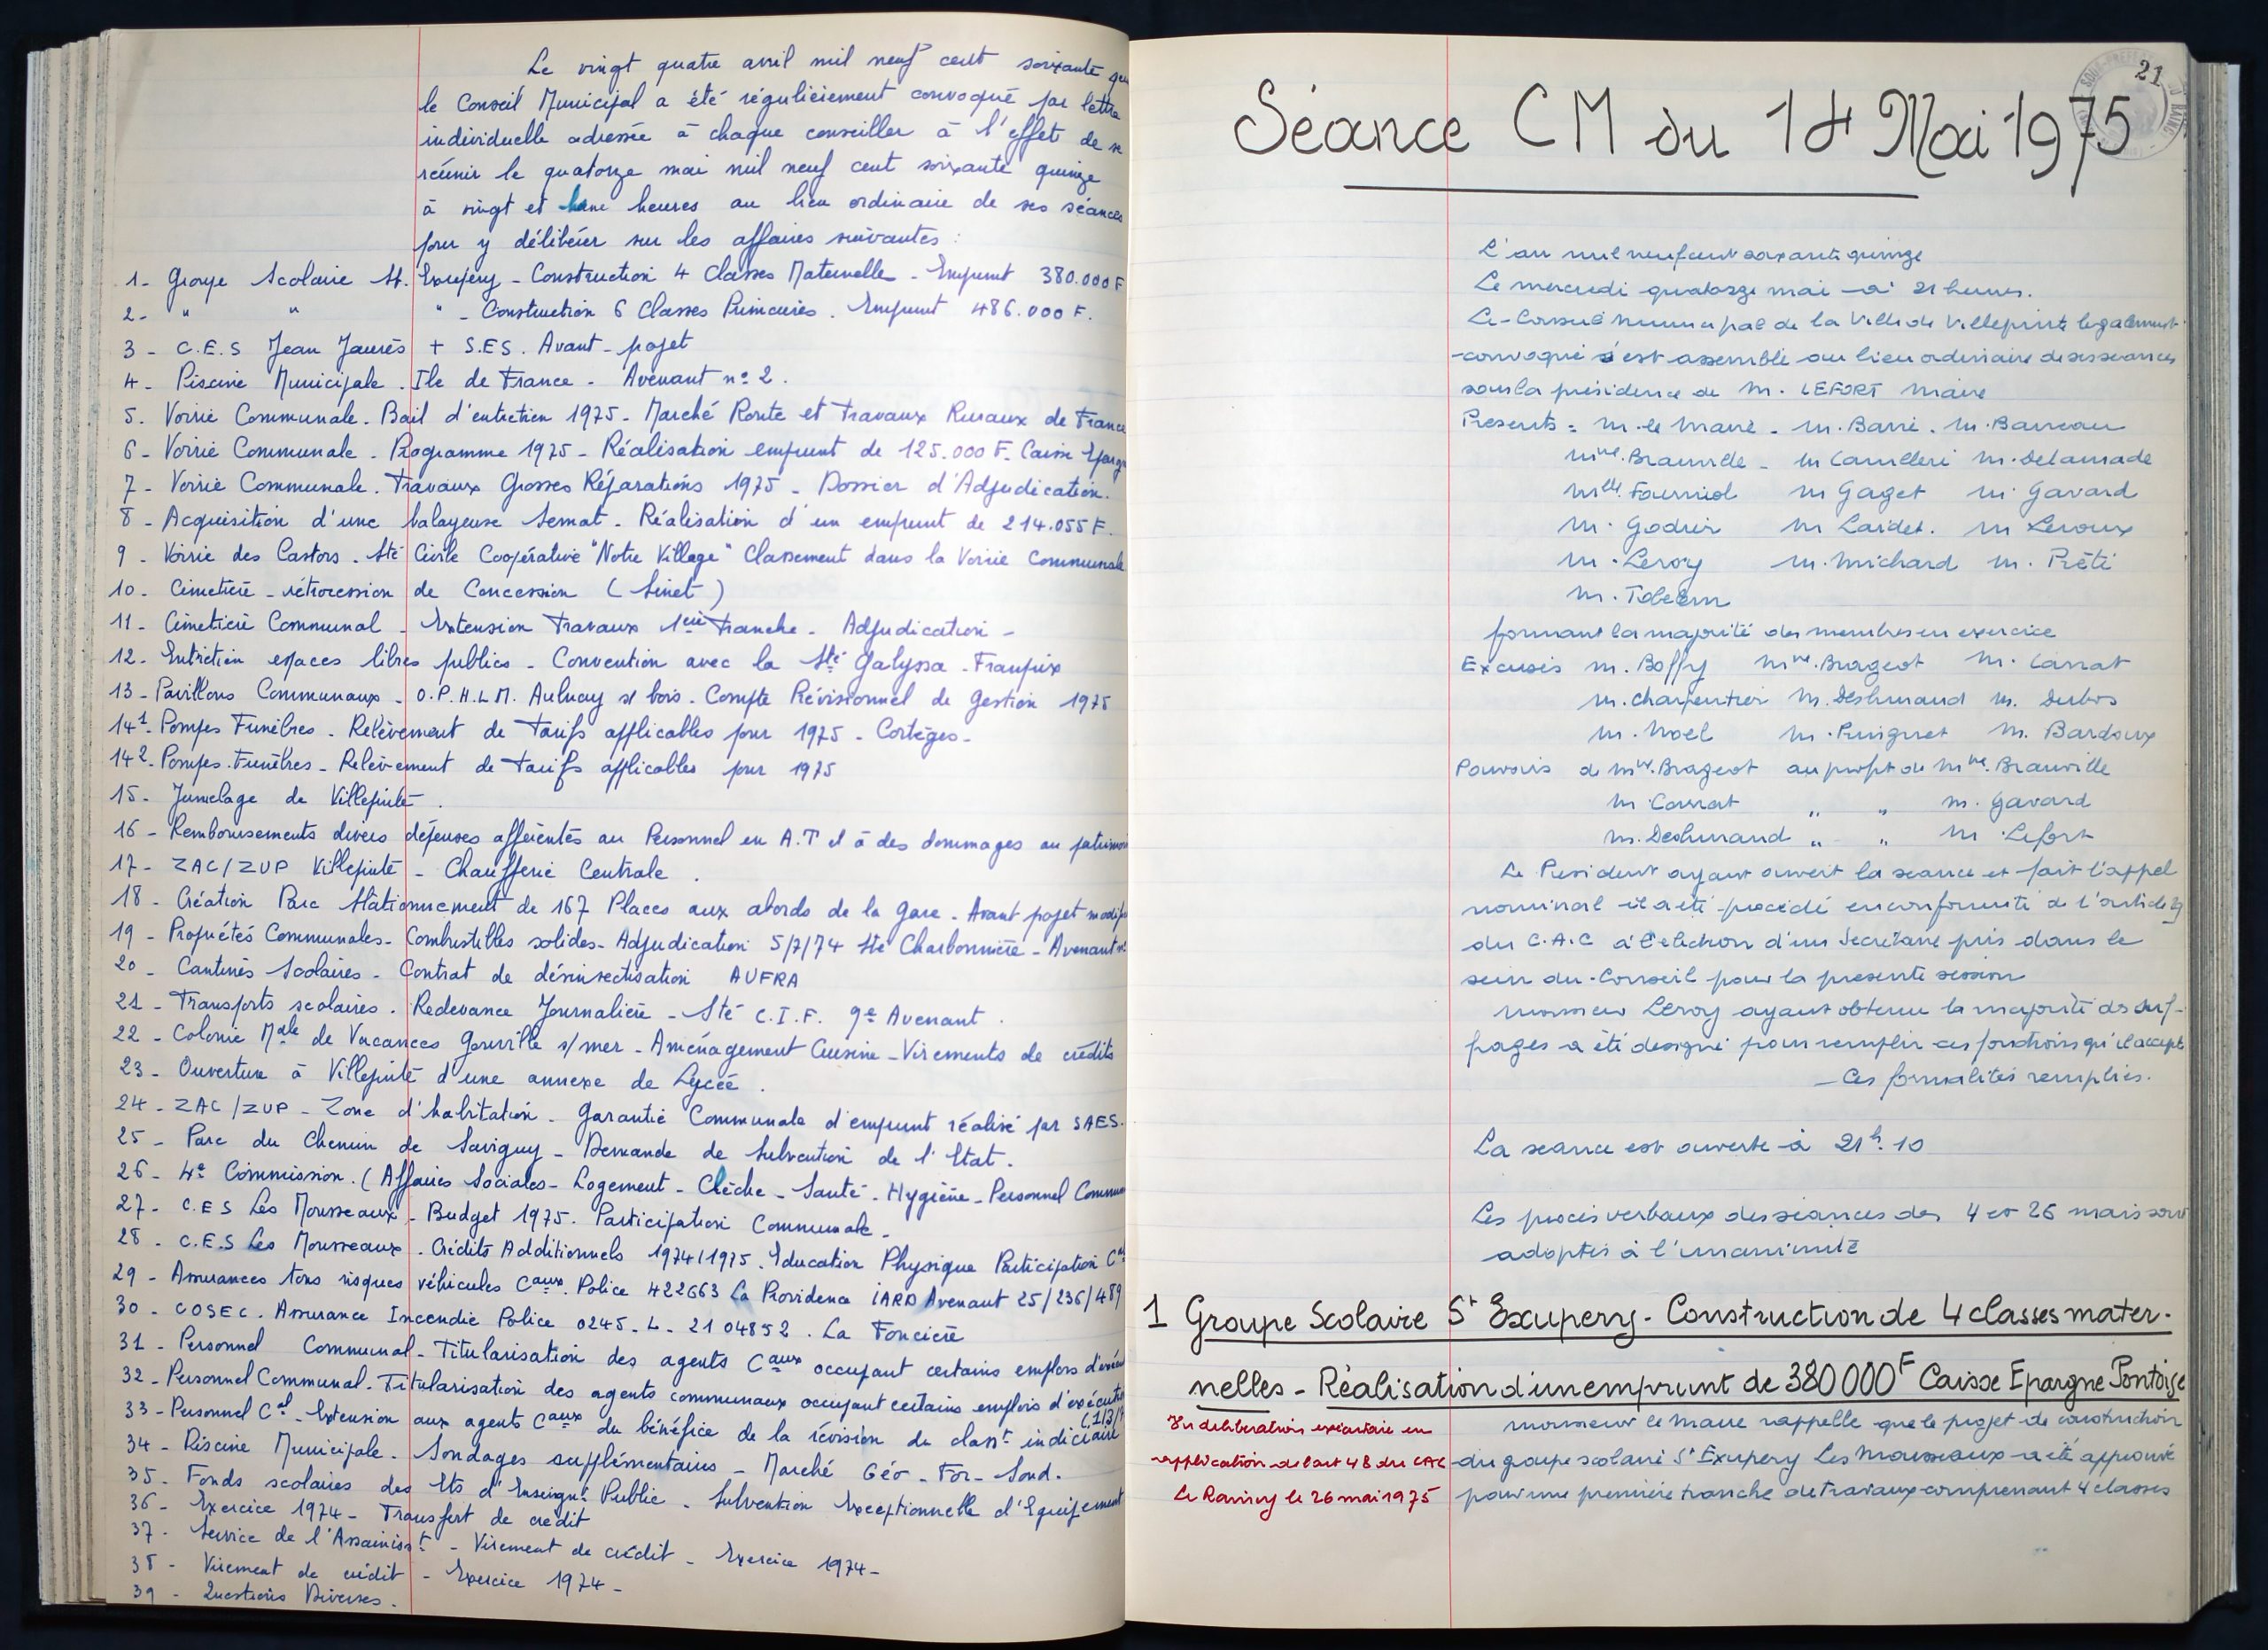 Le vingt quatre avril mil neuf cent soixante
le Conseil Municipal a été régulièrement convoqué par lettre
individuelle adressée à chaque conseiller à l'effet de se
réunir le quatorze mai mil neuf cent soixante quinze
à vingt et une heures au lieu ordinaire de ses séances
pour y délibérer sur les affaires suivantes :
1- Groupe Scolaire St. Exupéry - Construction 4 Classes Maternelle - Emprunt 380.000 F
2- " " " - Construction 6 Classes Primaires. Emprunt 486.000 F.
3 - C.E.S Jean Jaurès + S.E.S. Avant-projet
4- Piscine Municipale. Ile de France - Avenant n° 2.
5. Voirie Communale. Bail d'entretien 1975 - Marché Route et Travaux Ruraux de France
6 - Voirie Communale. Programme 1975 - Réalisation emprunt de 125.000 F. Caisse Eparg
7 - Voirie Communale. Travaux Grosses Réparations 1975 - Dossier d'Adjudication.
8 - Acquisition d'une balayeuse Semat. Réalisation d'un emprunt de 214.055 F.
9 - Voirie des Castors. Sté Civile Coopérative "Notre Village" Classement dans la Voirie Communale
10 - Cimetière - rétrocession de Concession ( Sinet )
11 - Cimetière Communal - Extension Travaux 1ère Tranche - Adjudication -
12 - Entretien espaces libres publics - Convention avec la Sté Galyssa - Franprix
13 - Pavillons Communaux - O.P.H.L.M. Aulnay s/ bois - Compte Prévisionnel de Gestion 1975
14¹- Pompes Funèbres - Relèvement de Tarifs applicables pour 1975 - Cortèges -
14²- Pompes-Funèbres - Relèvement de Tarifs applicables pour 1975
15 - Jumelage de Villepinte.
16 - Remboursements divers dépenses afférentes au Personnel en A.T et à des dommages au patrimoi
17 - ZAC/ZUP Villepinte - Chaufferie Centrale.
18 - Création Parc Stationnement de 167 Places aux abords de la Gare - Avant projet modifi
19 - Propriétés Communales - Combustibles solides - Adjudication 5/7/74 Sté Charbonnière - Avenant n°
20 - Cantines Scolaires - Contrat de désinsectisation AUFRA
21 - Transports scolaires. Redevance Journalière - Sté C.I.F. 9e Avenant.
22 - Colonie Male de Vacances Gouville s/mer - Aménagement Cuisine - Virements de crédits
23 - Ouverture à Villepinte d'une annexe de Lycée.
24 - ZAC/ZUP - Zone d'habitation - Garantie Communale d'emprunt réalisé par SAES.
25 - Parc du Chemin de Savigny - Demande de Subvention de l'Etat.
26 - 4e Commission. (Affaires Sociales - Logement - Crèche - Santé - Hygiène - Personnel Commu
27 - C.E.S Les Mousseaux - Budget 1975. Participation Communale -
28 - C.E.S Les Mousseaux. Crédits Additionnels 1974/1975. Education Physique Participation Cle
29 - Assurances tous risques véhicules Caux. Police 422663 La Providence IARD Avenant 25/236/489
30 - COSEC. Assurance Incendie Police 0245-L-21 04852. La Foncière
31 - Personnel Communal - Titularisation des agents Caux occupant certains emplois d'exécu
32 - Personnel Communal - Titularisation des agents communaux occupant certains emplois d'exécuti
33 - Personnel Cal - Extension aux agents Caux du bénéfice de la révision du classt indiciaire
34 - Piscine Municipale. Sondages supplémentaires - Marché Géo-For-Sond.
35 - Fonds scolaires des Ets d'Enseignt Public. Subvention Exceptionnelle d'Equipement
36 - Exercice 1974 - Transfert de crédit
37 - Service de l'Assainisst - Virement de crédit - Exercice 1974 -
38 - Virement de crédit - Exercice 1974 -
39 - Questions Diverses.
21
Séance CM du 14 Mai 1975
L'an mil neuf cent soixante quinze
Le mercredi quatorze mai à 21 heures.
Le Conseil municipal de la Ville de Villepinte légalement
convoqué s'est assemblé au lieu ordinaire de ses séances
sous la présidence de M. LEFORT Maire
Présents : M. le Maire - M. Barré. M. Barreau
Mme. Brauville - M Camilleri M. Delamade
Mlle. Fourniol M Gaget M. Gavard
M. Godrir M Lardet. M Leroux
M. Leroy M. Michard M. Prêti
M. Tobelem
formant la majorité des membres en exercice
Excusés M. Boffy Mme. Brageot M. Carrat
M. Charpentier M. Deshurand M. Dubos
M. Noel M. Puignet M. Bardoux
Pouvoirs de Mme. Brageot au profit de Mme. Brauville
M. Carrat " " M. Gavard
M. Deshurand " " M. Lefort
Le Président ayant ouvert la séance et fait l'appel
nominal il a été procédé en conformité de l'article 29
du C.A.C à l'élection d'un Secrétaire pris dans le
sein du Conseil pour la présente session
Monsieur Leroy ayant obtenu la majorité des suf-
frages a été désigné pour remplir ces fonctions qu'il accepte
- Ces formalités remplies.
La séance est ouverte à 21h.10
Les procès verbaux des séances des 4 et 26 mars sont
adoptés à l'unanimité
1 Groupe Scolaire St Exupery - Construction de 4 classes mater-
nelles - Réalisation d'un emprunt de 380 000F Caisse Epargne Pontoise
Vu délibération exécutoire en
application de l'art 48 du CAC
Le Raincy le 26 mai 1975
Monsieur le Maire rappelle que le projet de construction
du groupe scolaire St Exupery Les Mousseaux a été approuvé
pour une première tranche de travaux comprenant 4 classes